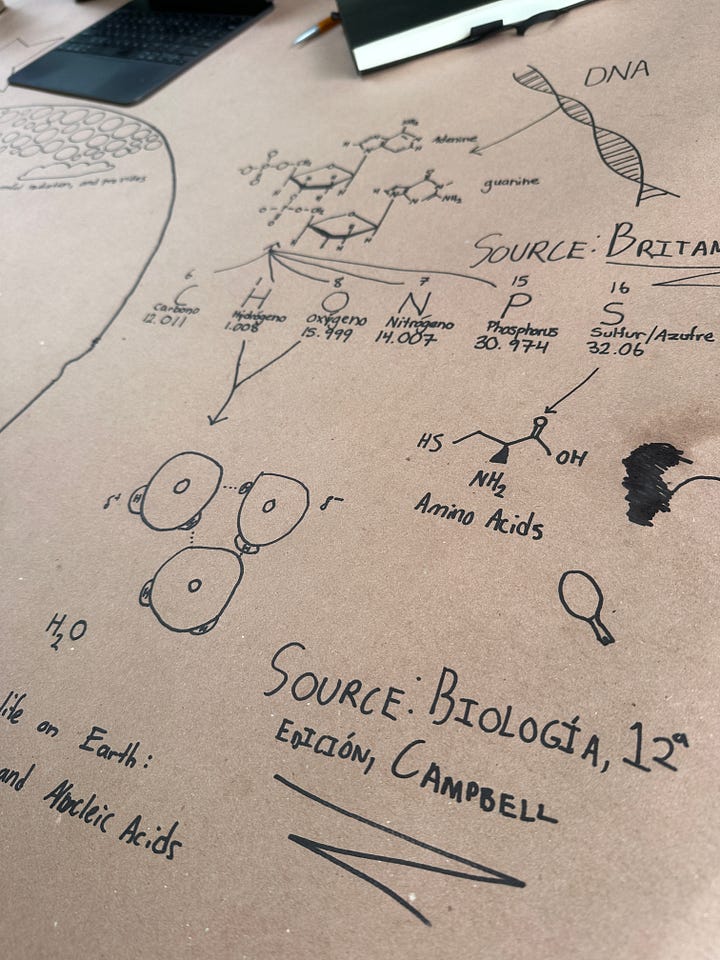 DNA
Adenine
guanine
SOURCE: BRITAN
6 8 7 15 16
C H O N P S
Carbono Hidrógeno Oxígeno Nitrógeno Phosphorus Sulfur/Azufre
12.011 1.008 15.999 14.007 30.974 32.06
HS O OH
NH₂
Amino Acids
δ+ δ-
H₂O
SOURCE: BIOLOGÍA, 12ª
EDICIÓN, CAMPBELL
life on Earth:
and Nucleic Acids